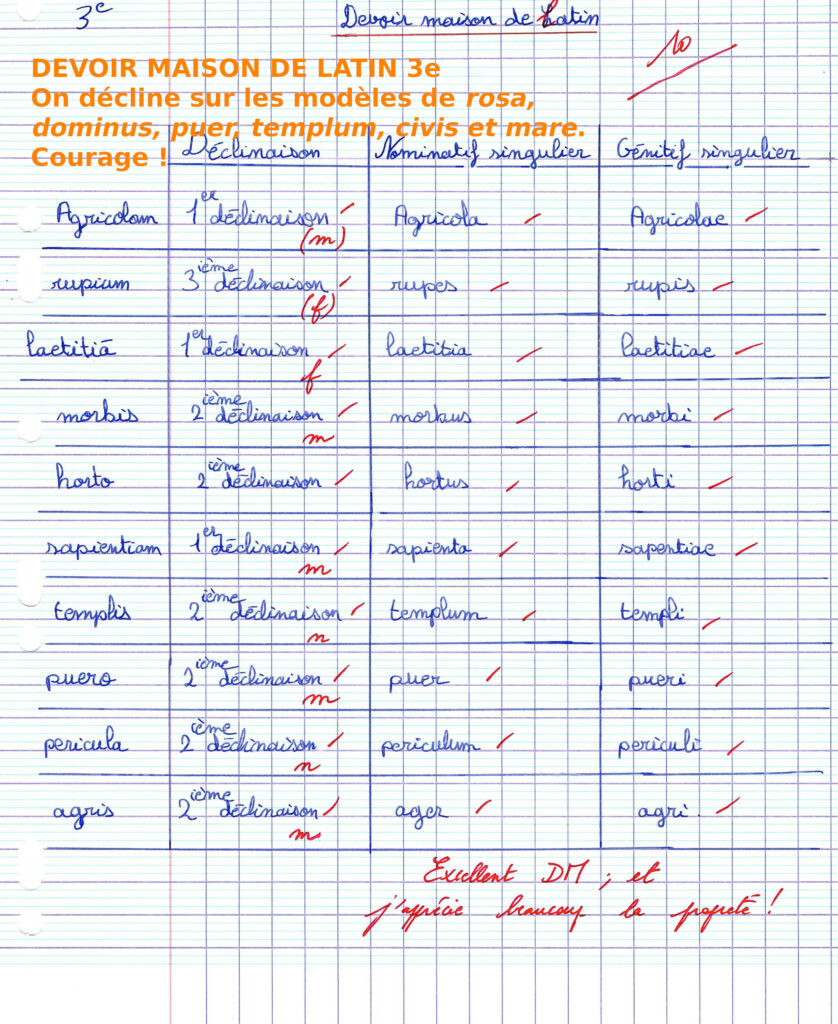 3e
Devoir maison de Latin
10
DEVOIR MAISON DE LATIN 3e
On décline sur les modèles de rosa,
dominus, puer, templum, civis et mare.
Courage !
Déclinaison Nominatif singulier Génitif singulier
Agricolam 1er déclinaison (m) Agricola Agricolae
rupium 3ième déclinaison (f) rupes rupis
laetitiā 1er déclinaison f laetitia laetitiae
morbis 2ième déclinaison m morbus morbi
horto 2ième déclinaison hortus horti
sapientiam 1er déclinaison m sapienta sapentiae
templis 2ième déclinaison n templum templi
puero 2ième déclinaison m puer pueri
pericula 2ième déclinaison n periculum periculi
agris 2ième déclinaison m ager agri.
Excellent DM ; et
j'apprécie beaucoup la propreté !